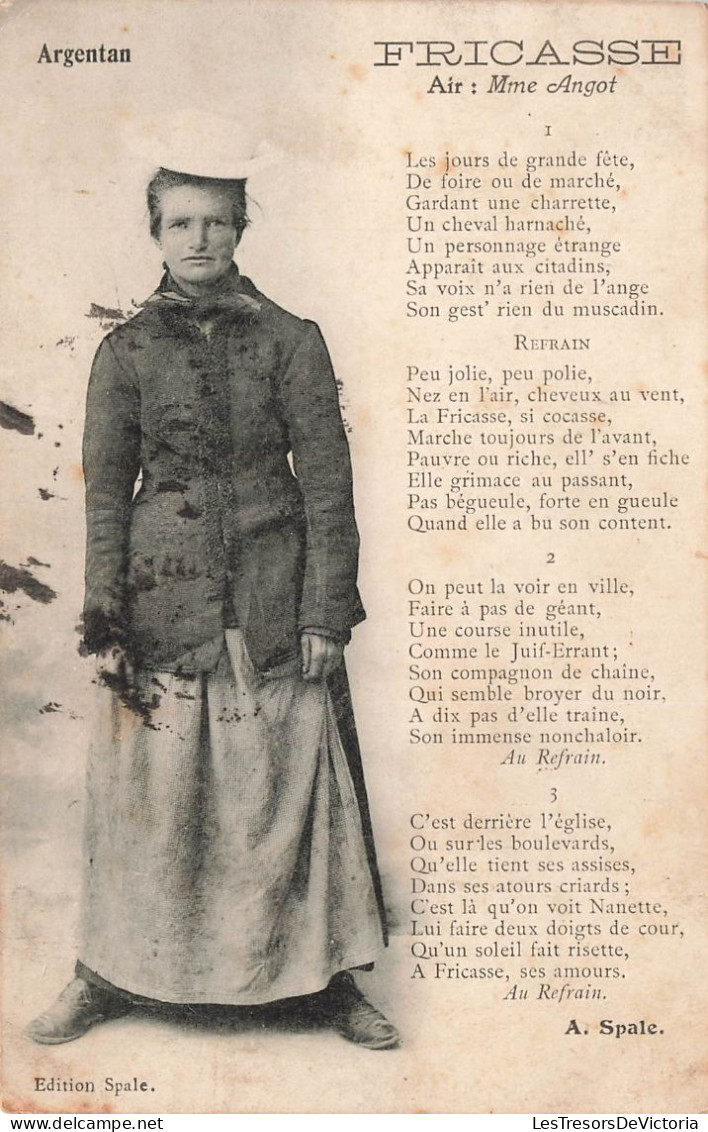 Argentan
FRICASSE
Air : Mme Angot
1
Les jours de grande fête,
De foire ou de marché,
Gardant une charrette,
Un cheval harnaché,
Un personnage étrange
Apparait aux citadins,
Sa voix n'a rien de l'ange
Son gest' rien du muscadin.
REFRAIN
Peu jolie, peu polie,
Nez en l'air, cheveux au vent,
La Fricasse, si cocasse,
Marche toujours de l'avant,
Pauvre ou riche, ell' s'en fiche
Elle grimace au passant,
Pas bégueule, forte en gueule
Quand elle a bu son content.
2
On peut la voir en ville,
Faire à pas de géant,
Une course inutile,
Comme le Juif-Errant ;
Son compagnon de chaîne,
Qui semble broyer du noir,
A dix pas d'elle traîne,
Son immense nonchaloir.
Au Refrain.
3
C'est derrière l'église,
Ou sur les boulevards,
Qu'elle tient ses assises,
Dans ses atours criards ;
C'est là qu'on voit Nanette,
Lui faire deux doigts de cour,
Qu'un soleil fait risette,
A Fricasse, ses amours.
Au Refrain.
A. Spale.
Edition Spale.
LesTresorsDeVictoria